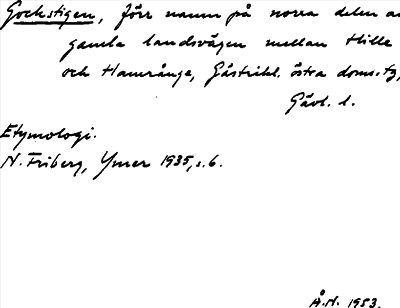 Gockstigen, förr namn på norra delen av
gamla landsvägen mellan Hille
och Hamrånge, Gästrikl. östra doms.tg,
Gävl. l.
Etymologi.
N. Friberg, Ymer 1935, s. 6.
Å.N. 1953.